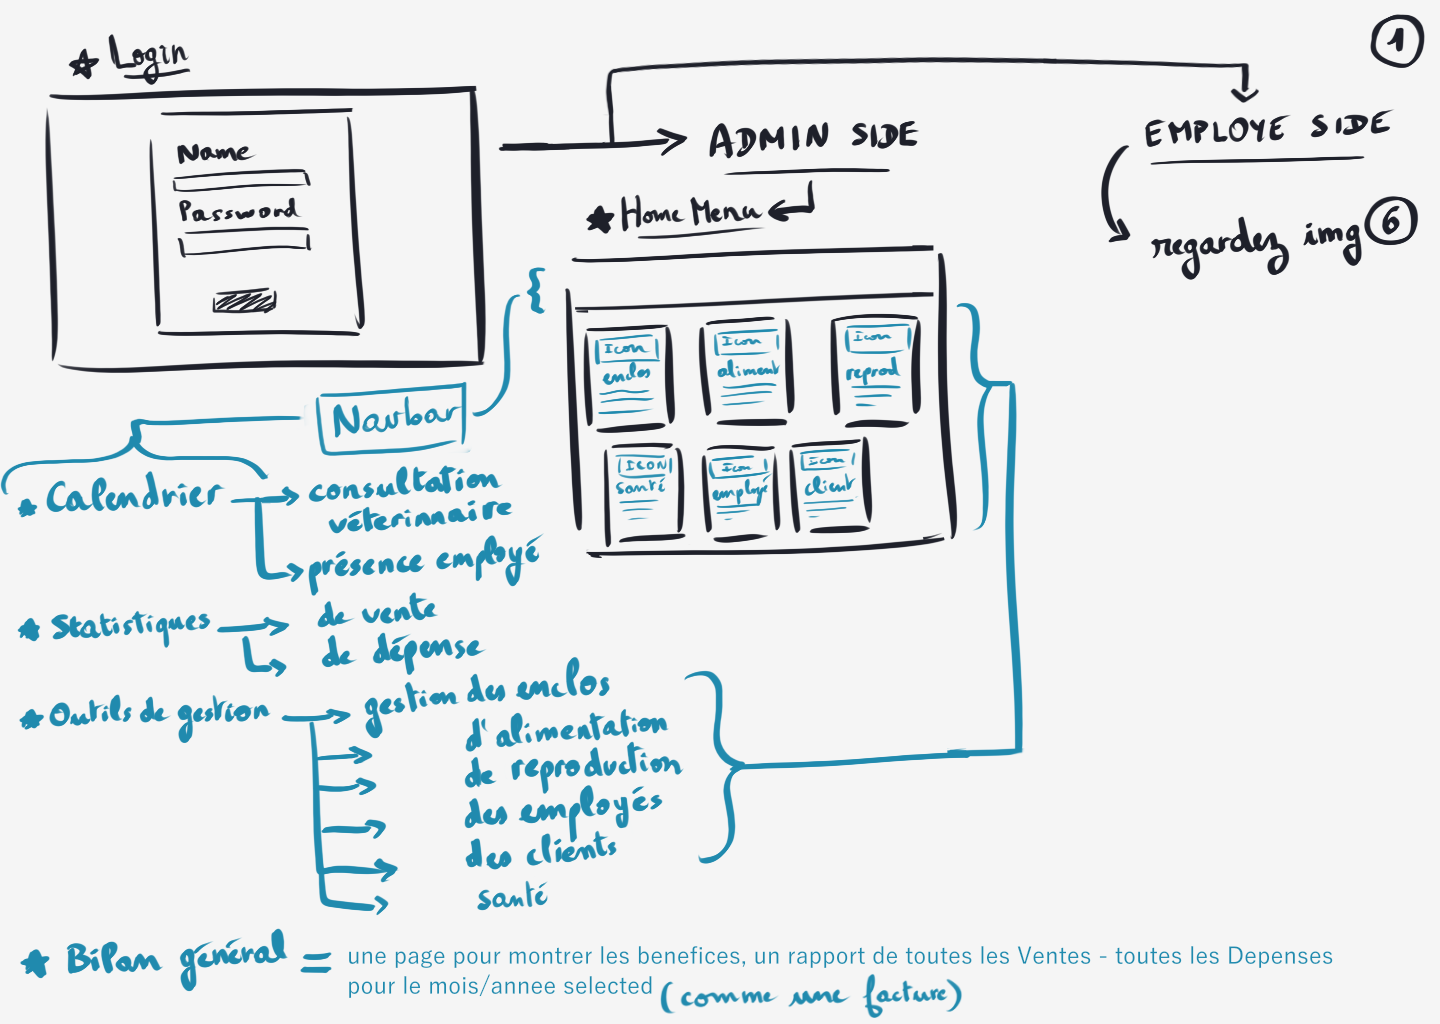 1
Login
Name
Password
ADMIN SIDE
EMPLOYE SIDE
Home Menu
regardez img 6
Icon
enclos
Icon
aliment
Icon
reprod
ICON
santé
Icon
employé
Icon
client
Navbar
Calendrier
consultation
véterinnaire
présence employé
Statistiques
de vente
de dépense
Outils de gestion
gestion des enclos
d'alimentation
de reproduction
des employés
des clients
santé
Bilan général = une page pour montrer les benefices, un rapport de toutes les Ventes - toutes les Depenses
pour le mois/annee selected (comme une facture)